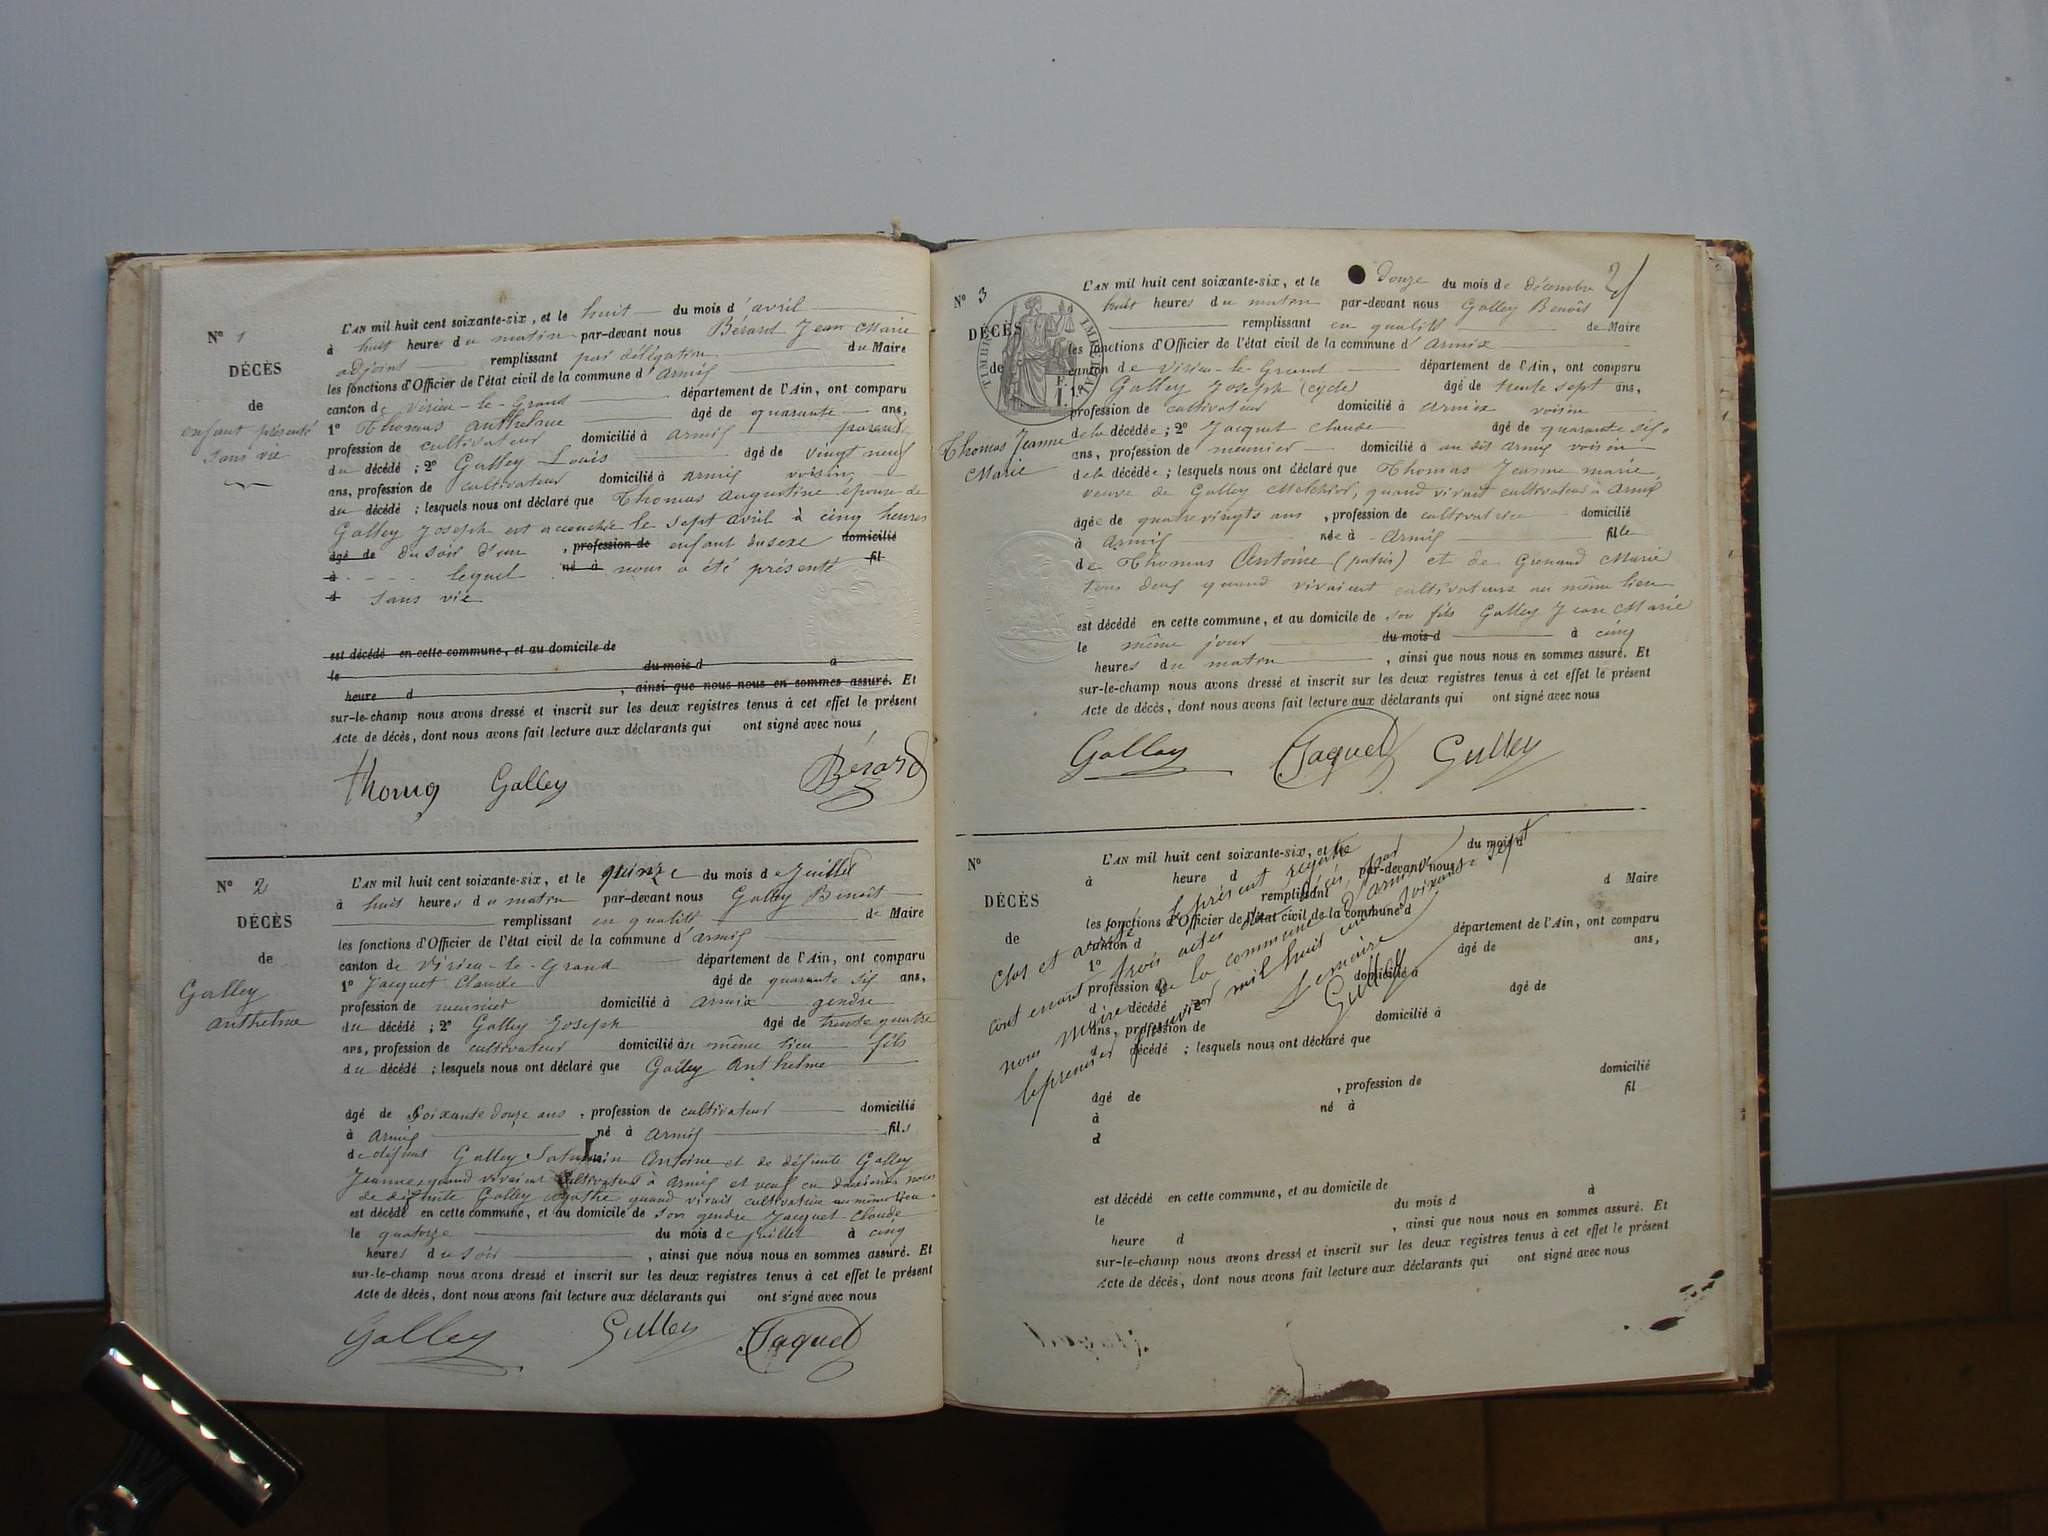 N° 1
DÉCÈS
de
enfant présenté
sans vie
L'AN mil huit cent soixante-six, et le huit du mois d'avril
à huit heures du matin par-devant nous Bérard Jean Marie
adjoint remplissant par délégation du Maire
les fonctions d'Officier de l'état civil de la commune d'Armix
canton de Virieu-le-Grand département de l'Ain, ont comparu
1° Thomas Anthelme âgé de quarante ans,
profession de cultivateur domicilié à Armix parent
du décédé ; 2° Galley Louis âgé de vingt neuf
ans, profession de cultivateur domicilié à Armix voisin
du décédé ; lesquels nous ont déclaré que Thomas Augustine épouse de
Galley Joseph est accouchée le sept avril à cinq heures
âgé de du soir d'un , profession de enfant du sexe domicilié
à lequel né à nous a été présenté fil
d sans vie
est décédé en cette commune, et au domicile de
le du mois d à
heure d , ainsi que nous nous en sommes assuré. Et
sur-le-champ nous avons dressé et inscrit sur les deux registres tenus à cet effet le présent
Acte de décès, dont nous avons fait lecture aux déclarants qui ont signé avec nous
Thomas Galley Bérard
N° 2
DÉCÈS
de
Galley
Anthelme
L'AN mil huit cent soixante-six, et le quinze du mois de Juillet
à huit heures du matin par-devant nous Galley Benoît
remplissant en qualité de Maire
les fonctions d'Officier de l'état civil de la commune d'Armix
canton de Virieu-le-Grand département de l'Ain, ont comparu
1° Jacquet Claude âgé de quarante six ans,
profession de meunier domicilié à Armix gendre
du décédé ; 2° Galley Joseph âgé de trente quatre
ans, profession de cultivateur domicilié au même lieu fils
du décédé ; lesquels nous ont déclaré que Galley Anthelme
âgé de Soixante douze ans , profession de cultivateur domicilié
à Armix né à Armix fils
de défunt Galley Saturnin Antoine et de défunte Galley
Jeanne, quand vivaient cultivateurs à Armix et veuf en deuxièmes noces
de défunte Galley Agathe quand vivait cultivatrice au même lieu
est décédé en cette commune, et au domicile de son gendre Jacquet Claude
le quatorze du mois de juillet à cinq
heures du soir , ainsi que nous nous en sommes assuré. Et
sur-le-champ nous avons dressé et inscrit sur les deux registres tenus à cet effet le présent
Acte de décès, dont nous avons fait lecture aux déclarants qui ont signé avec nous
Galley Gulley Jaquet
N° 3
DÉCÈS
de
Thomas Jeanne
Marie
TIMBRE IMPÉRIAL
L'AN mil huit cent soixante-six, et le douze du mois de décembre
huit heures du matin par-devant nous Galley Benoît
remplissant en qualité de Maire
les fonctions d'Officier de l'état civil de la commune d'Armix
canton de Virieu-le-Grand département de l'Ain, ont comparu
1° Galley Joseph (cycle) âgé de trente sept ans,
profession de cultivateur domicilié à Armix voisin
de la décédée ; 2° Jacquet Claude âgé de quarante six
ans, profession de meunier domicilié à au dit Armix voisin
de la décédée ; lesquels nous ont déclaré que Thomas Jeanne marie
veuve de Galley Melchior, quand vivait cultivateur à Armix
âgée de quatre vingts ans , profession de cultivatrice domicilié
à Armix née à Armix fille
de Thomas Antoine (patris) et de Grenand Marie
tous deux quand vivaient cultivateurs au même lieu
est décédé en cette commune, et au domicile de son fils Galley Jean Marie
le même jour du mois d à cinq
heures du matin , ainsi que nous nous en sommes assuré. Et
sur-le-champ nous avons dressé et inscrit sur les deux registres tenus à cet effet le présent
Acte de décès, dont nous avons fait lecture aux déclarants qui ont signé avec nous
Galley Jaquet Gulley
N°
DÉCÈS
de
L'AN mil huit cent soixante-six, et le du mois d
à heure d par-devant nous
remplissant d Maire
les fonctions d'Officier de l'état civil de la commune d
canton d département de l'Ain, ont comparu
1° âgé de ans,
profession de domicilié à
d décédé ; 2° âgé de
ans, profession de domicilié à
d décédé ; lesquels nous ont déclaré que
âgé de , profession de domicilié
à né à fil
d
est décédé en cette commune, et au domicile de
le du mois d à
heure d , ainsi que nous nous en sommes assuré. Et
sur-le-champ nous avons dressé et inscrit sur les deux registres tenus à cet effet le présent
Acte de décès, dont nous avons fait lecture aux déclarants qui ont signé avec nous
Clos et arrêté le présent registre
contenant trois actes de décès par
nous Maire de la commune d'Armix
le premier janvier mil huit cent soixante sept
Le maire
Gulley